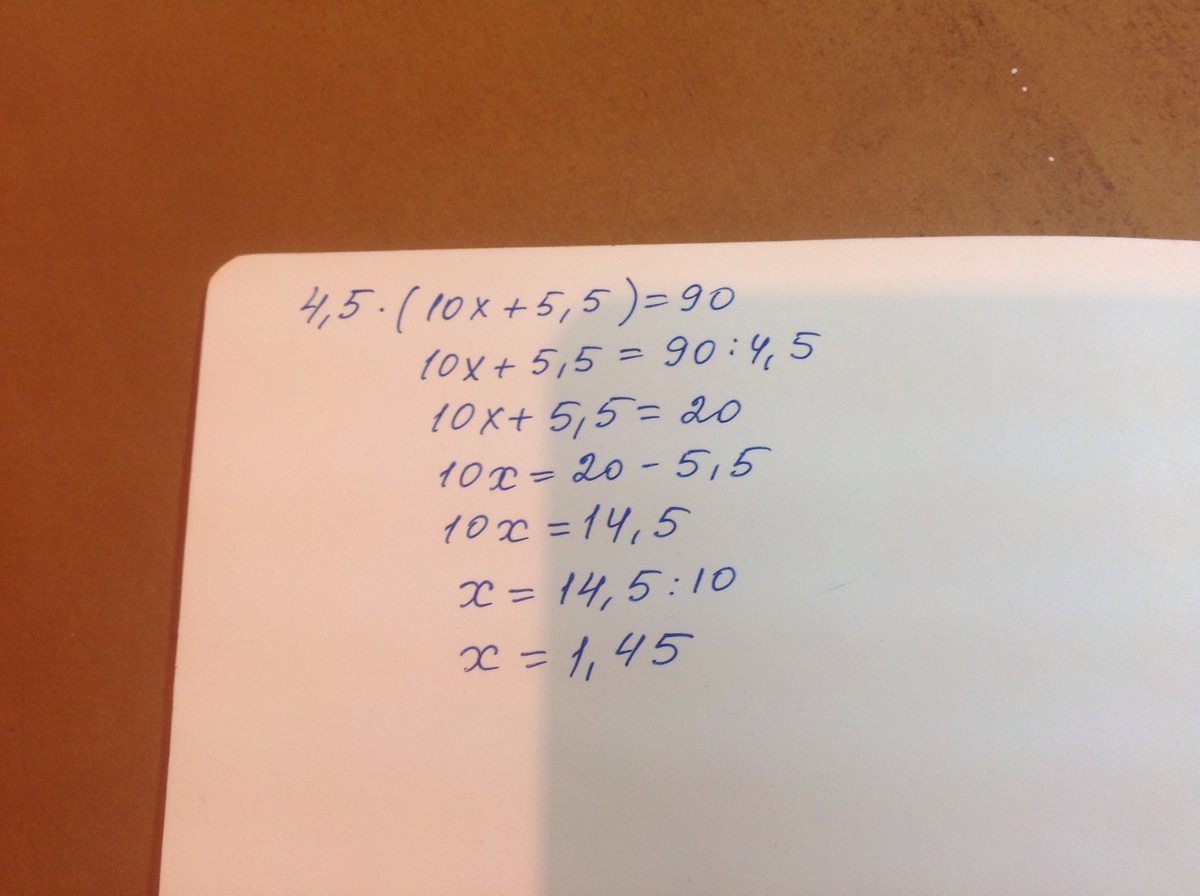 4,5·(10x+5,5)=90
10x+5,5=90:4,5
10x+5,5=20
10x=20-5,5
10x=14,5
x=14,5:10
x=1,45